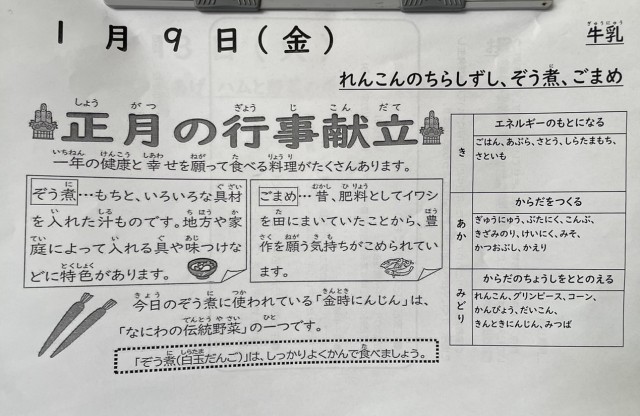 1月9日(金)
牛乳
れんこんのちらしずし、ぞう煮、ごまめ
正月の行事献立
一年の健康と幸せを願って食べる料理がたくさんあります。
ぞう煮…もちと、いろいろな具材
を入れた汁ものです。地方や家
庭によって入れる具や味つけな
どに特色があります。
ごまめ…昔、肥料としてイワシ
を田にまいていたことから、豊
作を願う気持ちがこめられてい
ます。
今日のぞう煮に使われている「金時にんじん」は、
「なにわの伝統野菜」の一つです。
「ぞう煮(白玉だんご)」は、しっかりよくかんで食べましょう。
き
エネルギーのもとになる
ごはん、あぶら、さとう、しらたまもち、
さといも
あか
からだをつくる
ぎゅうにゅう、ぶたにく、こんぶ、
きざみのり、けいにく、みそ、
かつおぶし、かえり
みどり
からだのちょうしをととのえる
れんこん、グリンピース、コーン、
かんぴょう、だいこん、
きんときにんじん、みつば